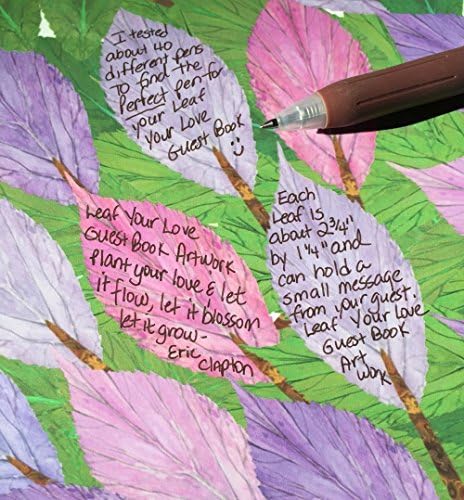 I tested
about 40
different pens
To find the
Perfect pen for
your Leaf
Your Love
Guest Book
Leaf Your Love
Guest Book Artwork
plant your love & let
it flow, let it blossom
let it grow-
Eric
Clapton
Each
Leaf Is
about 2 3/4"
by 1 1/4" and
can hold a
small message
from your guest.
Leaf Your Love
Guest Book
Art
Work